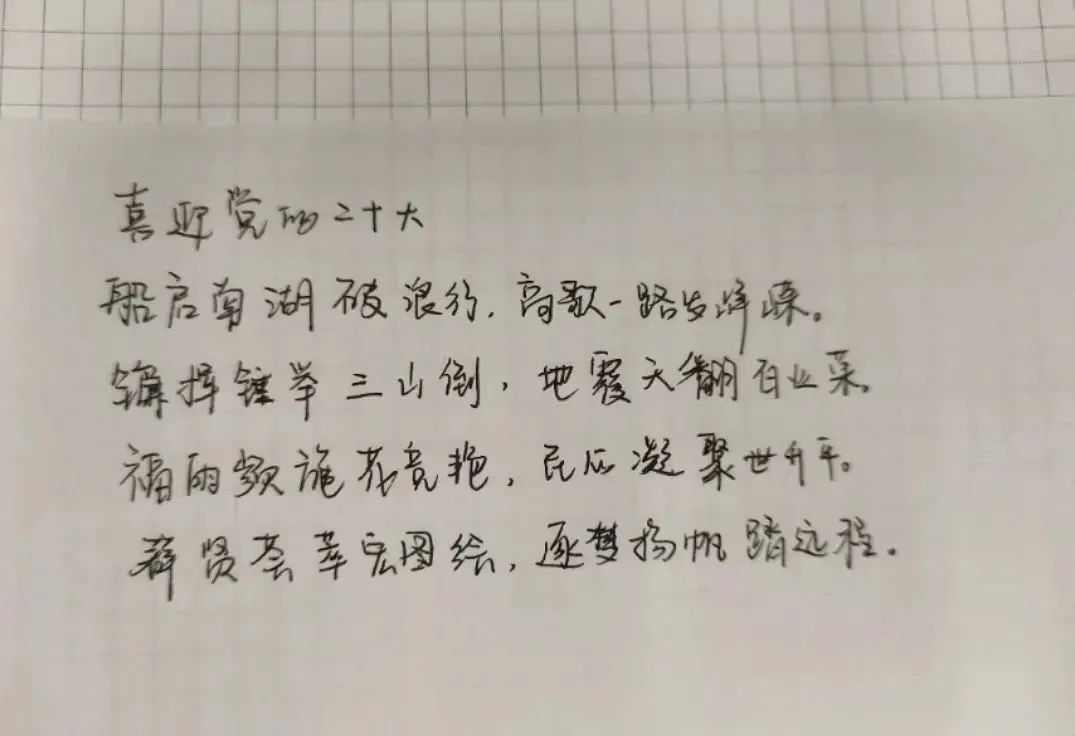 喜迎党的二十大
船启南湖破浪行,高歌一路步峥嵘。
镰挥锤举三山倒,地覆天翻百业荣。
福雨频施花竞艳,民心凝聚世升平。
群贤荟萃宏图绘,逐梦扬帆踏远程。